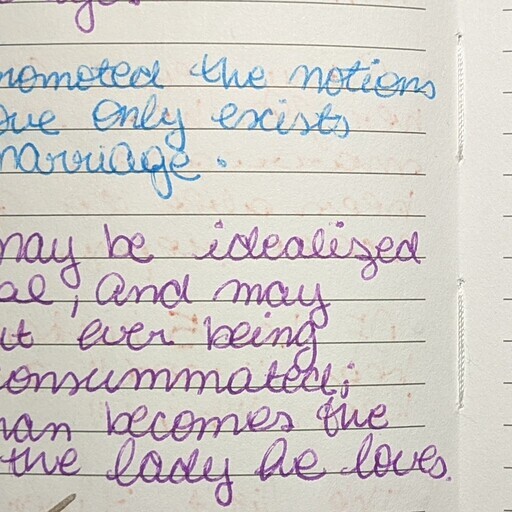 romoted the notions
ove only exists
narriage.
may be idealized
al, and may
ut ever being
onsummated;
nan becomes the
the lady he loves.